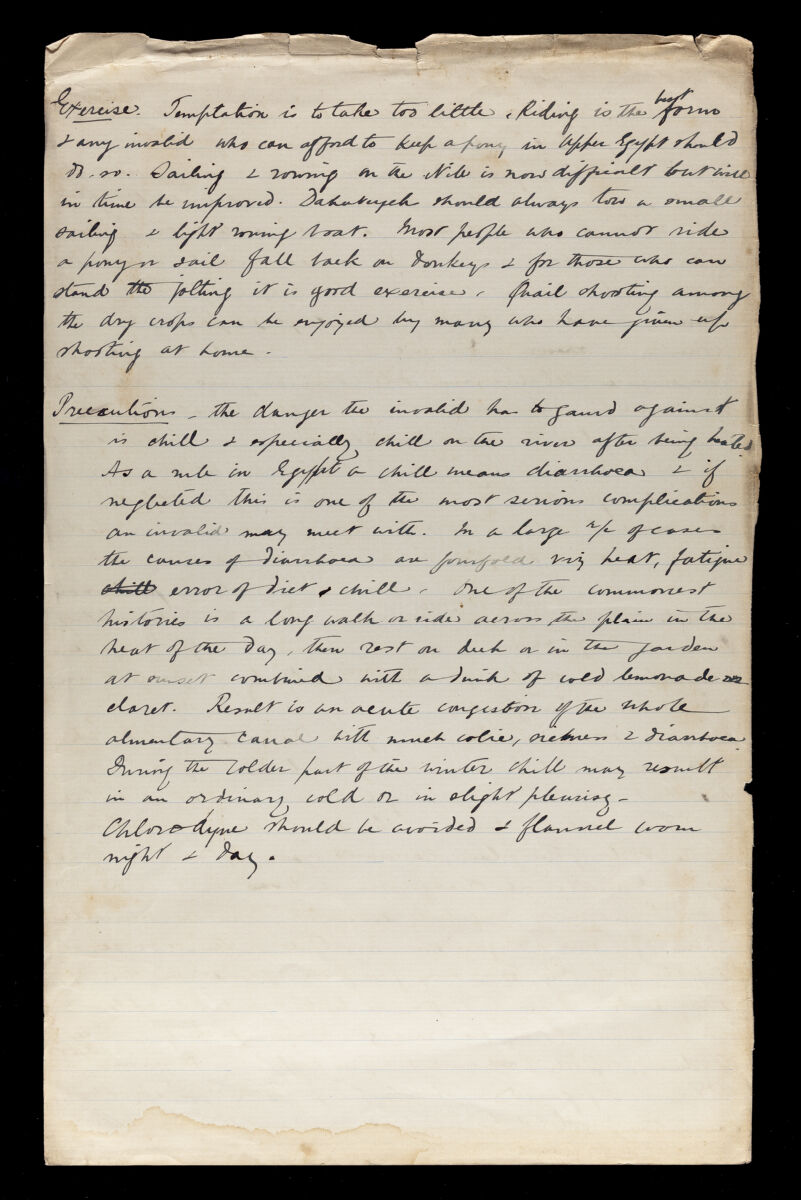 Exercise. Temptation is to take too little. Riding is the best form
& any invalid who can afford to keep a pony in Upper Egypt should
do so. Sailing & rowing on the Nile is now difficult but will
in time be improved. Dahabiyeh should always tow a small
sailing & light rowing boat. Most people who cannot ride
a pony or sail fall back on donkeys & for those who can
stand the jolting it is good exercise. Quail shooting among
the dry crops can be enjoyed by many who have given up
shooting at home.
Precautions - the danger the invalid has to gaurd against
is chill & especially chill on the river after being heated
As a rule in Egypt a chill means diarrhoea & if
neglected this is one of the most serious complications
an invalid may meet with. In a large % of cases
the causes of diarrhoea are fourfold viz heat, fatigue
chill error of diet & chill. One of the commonest
histories is a long walk or ride across the plain in the
heat of the day, then rest on deck or in the garden
at sunset combined with a drink of cold lemonade or
claret. Result is an acute congestion of the whole
alimentary canal with much colic, sickness & diarrhoea.
During the colder part of the winter chill may result
in an ordinary cold or in slight pleurisy -
Chlorodyne should be avoided & flannel worn
night & day.